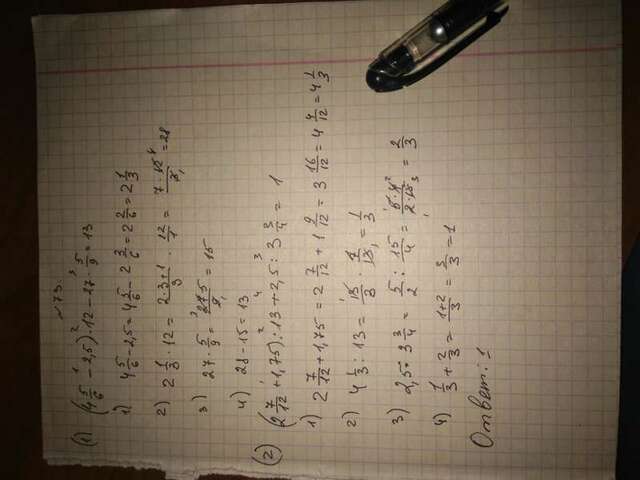 №73.
(1) (4 5/6 - 2,5) · 12 - 27 · 5/9 = 13
1) 4 5/6 - 2,5 = 4 5/6 - 2 3/6 = 2 2/6 = 2 1/3
2) 2 1/3 · 12 = 2·3+1/3 · 12/1 = 7·12/3 = 28
3) 27 · 5/9 = 27·5/9 = 15
4) 28 - 15 = 13
(2) (2 7/12 + 1,75) : 13 + 2,5 : 3 3/4 = 1
1) 2 7/12 + 1,75 = 2 7/12 + 1 9/12 = 3 16/12 = 4 4/12 = 4 1/3
2) 4 1/3 : 13 = 13/3 · 1/13 = 1/3
3) 2,5 : 3 3/4 = 5/2 : 15/4 = 5·4/2·15 = 2/3
4) 1/3 + 2/3 = 1+2/3 = 3/3 = 1
Ответ: 1